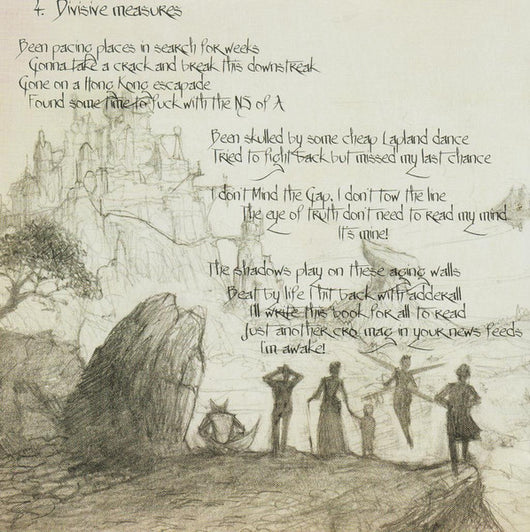 4. Divisive measures
Been pacing places in search for weeks
Gonna take a crack and break this downstreak
Gone on a Hong Kong escapade
Found some time to fuck with the NS of A
Been skulled by some cheap Lapland dance
Tried to fight back but missed my last chance
I don't Mind the Gap, I don't tow the line
The eye of truth don't need to read my mind
It's mine!
The shadows play on these aging walls
Beat by life I hit back with adderall
I'll write this book for all to read
Just another cro mag in your news feeds
I'm awake!